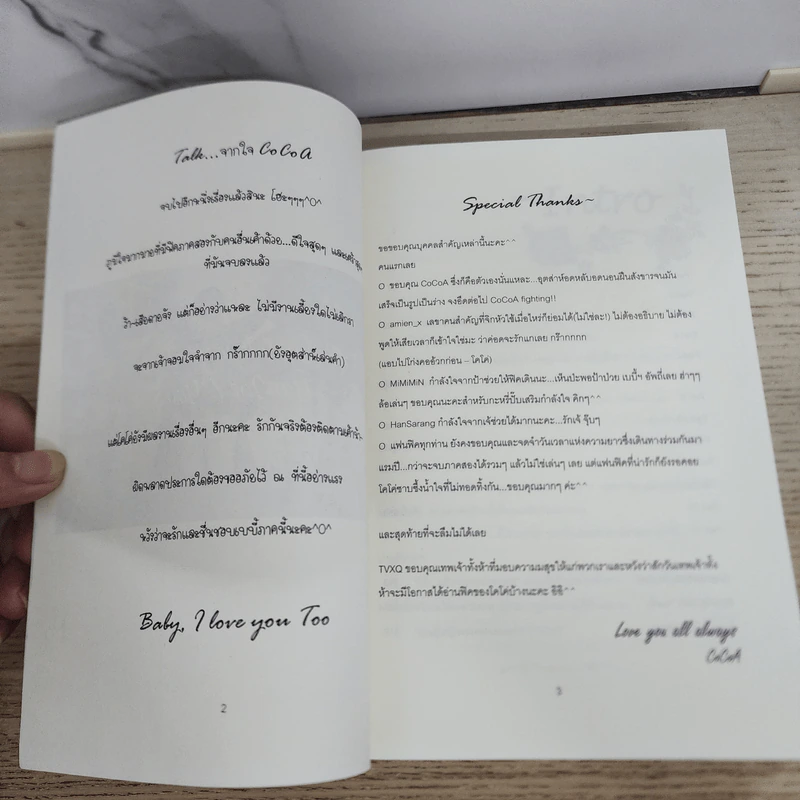 Talk...จากใจ CoCoA
จบไปอีกหนึ่งเรื่องแล้วสินะ โฮะๆๆๆ^O^
ภูมิใจมากมายที่มีฟิคภาคสองกับคนอื่นเค้าด้วย...ดีใจสุดๆ และเศร้า
ที่มันจบลงแล้ว
ว้า-เสียดายจัง แต่ก็อย่างว่าแหละ ไม่มีงานเลี้ยงใดไม่เลิกรา
จะจากเจ้าจอมใจจำจาก กร๊ากกกก(ยังอุตส่าห์เล่นคำ)
แต่โคโค่ยังมีผลงานเรื่องอื่นๆ อีกนะคะ รักกันจริงต้องติดตามเค้า
ผิดพลาดประการใดต้องขออภัยไว้ ณ ที่นี้อย่างแรง
หวังว่าจะรักและชื่นชอบเบบี้ภาคนี้นะคะ^O^
Baby, I love you Too
2
Special Thanks~
ขอขอบคุณบุคคลสำคัญเหล่านี้นะคะ^^
คนแรกเลย
O ขอบคุณ CoCoA ซึ่งก็คือตัวเองนั่นแหละ...อุตส่าห์อดหลับอดนอนฝืนสังขารจนมัน
เสร็จเป็นรูปเป็นร่าง จงอึดต่อไป CoCoA fighting!!
O amien_x เลขาคนสำคัญที่จิกหัวใช้เมื่อไหร่ก็ย่อมได้(ไม่ใช่ละ!) ไม่ต้องอธิบาย ไม่ต้อง
พูดให้เสียเวลาก็เข้าใจใช่มะ ว่าค่อดจะรักแกเลย กร๊ากกกก
(แอบไปโก่งคออ้วกก่อน – โคโค่)
O MiMiMiN กำลังใจจากป้าช่วยให้ฟิคเดินนะ...เห็นปะพอป้าป่วย เบบี้ฯ อัพถี่เลย ฮ่าๆๆ
ล้อเล่นๆ ขอบคุณนะคะสำหรับกะหรี่ปั๊บเสริมกำลังใจ คิกๆ^^
O HanSarang กำลังใจจากเจ้ช่วยได้มากนะคะ...รักเจ้ จุ๊บๆ
O แฟนฟิคทุกท่าน ยังคงขอบคุณและจดจำวันเวลาแห่งความยาวซึ่งเดินทางร่วมกันมา
แรมปี...กว่าจะจบภาคสองได้รวมๆ แล้วไม่ใช่เล่นๆ เลย แต่แฟนฟิคที่น่ารักก็ยังรอคอย
โคโค่ซาบซึ้งน้ำใจที่ไม่ทอดทิ้งกัน...ขอบคุณมากๆ ค่ะ^^
และสุดท้ายที่จะลืมไม่ได้เลย
TVXQ ขอบคุณเทพเจ้าทั้งห้าที่มอบความมสุขให้แก่พวกเราและหวังว่าสักวันเทพเจ้าทั้ง
ห้าจะมีโอกาสได้อ่านฟิคของโคโค่บ้างนะคะ อิอิ^^
Love you all always
CoCoA
3